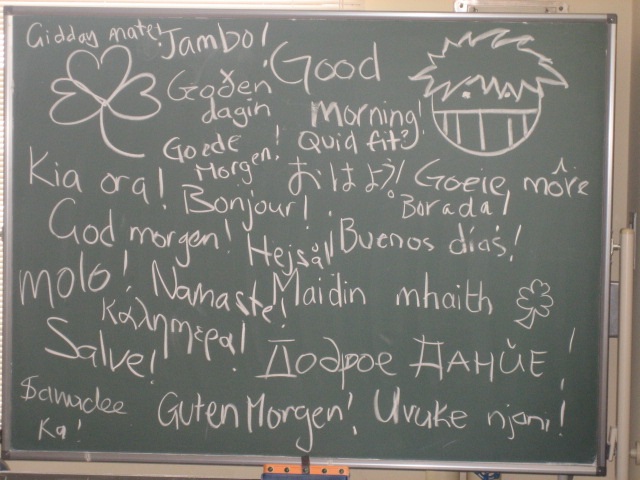 Gidday mate! Jambo!
Good
Morning!
Goðen
dagin
Goede
Morgen!
Quid fit?
Kia ora!
おはよう!
Goeie môre
Bonjour!
Borada!
God morgen!
Hejså!
Buenos días!
molo!
Namaste!
Maidin mhaith
Καλημερα!
Salve!
Доброе Данйе!
Sawadee
Ka!
Guten Morgen!
Uvuke njani!